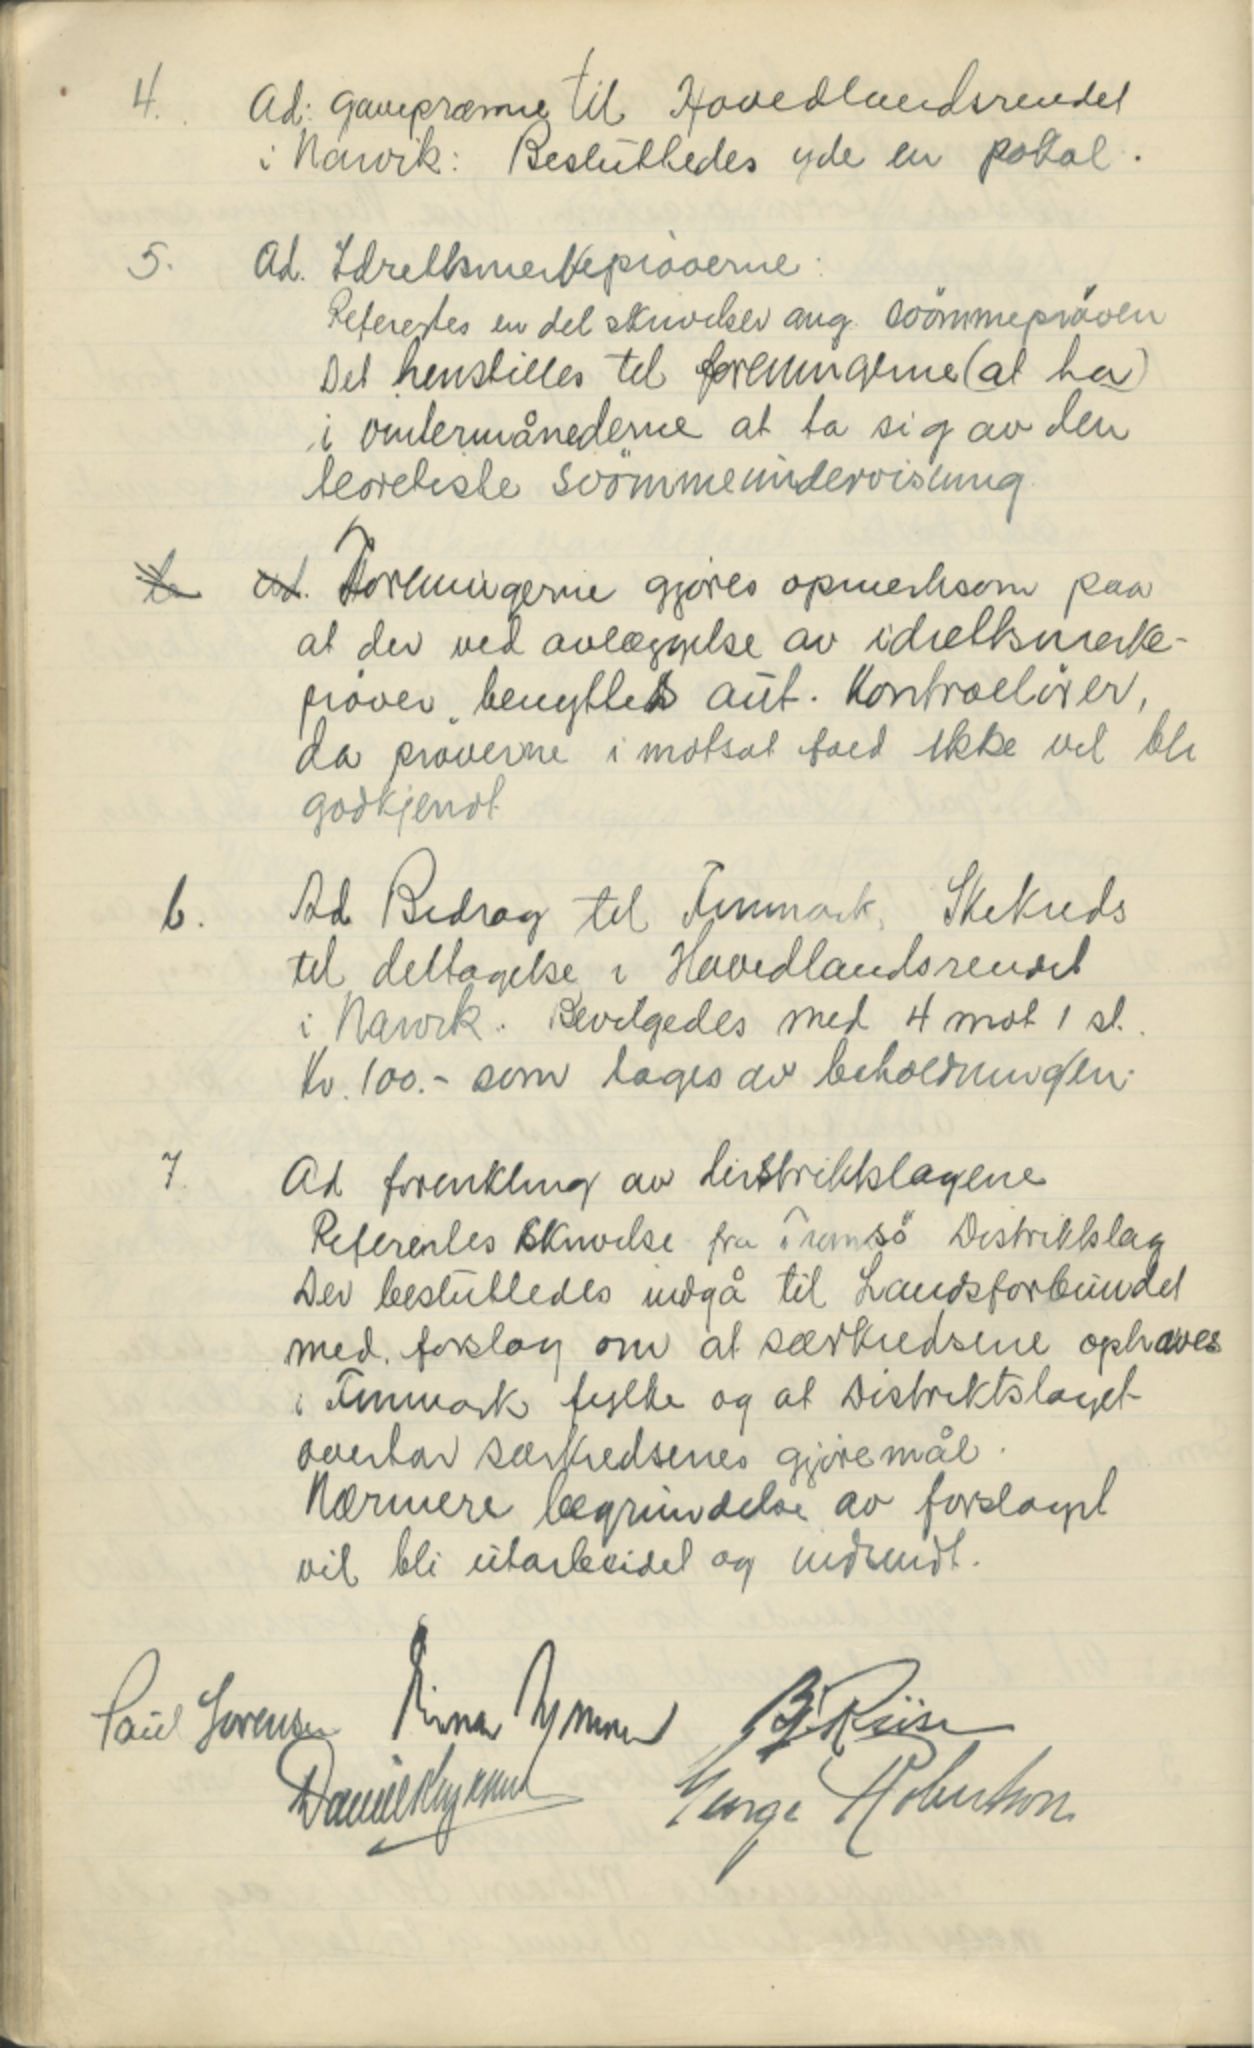 4. Ad: Gavepræmie til Hovedlandsrendet
i Narvik: Besluttedes yde en pokal.
5. Ad. Idrettsmerkeprøverne:
Refertes en del skrivelser ang. svömmepröven
Det henstilles til foreningerne (at ha)
i vintermånederne at ta sig av den
teoretiske svömmeundervisning
Foreningerne gjöres opmerksom paa
at der ved avlæggelse av idrettsmerke-
pröver benyttes aut. Kontrollörer,
da pröverne i motsat fald ikke vil bli
godkjendt
6. Ad Bidrag til Finmark Skikreds
til deltagelse i Hovedlandsrendet
i Narvik. Bevilgedes med 4 mot 1 st.
Kr. 100.- som tages av beholdningen.
7. Ad forenkling av distriktslagene
Refertes skrivelse fra Tromsö Distriktslag
Der besluttedes indgå til Landsforbundet
med forslag om at særkredsene ophæves
i Finmark fylke og at Distriktslaget
overtar særkredsenes gjöremål.
Nærmere begrundelse av forslaget
vil bli utarbeidet og indsendt.
Paul Sorensen Einar B. Riise
Daniel George Robertson